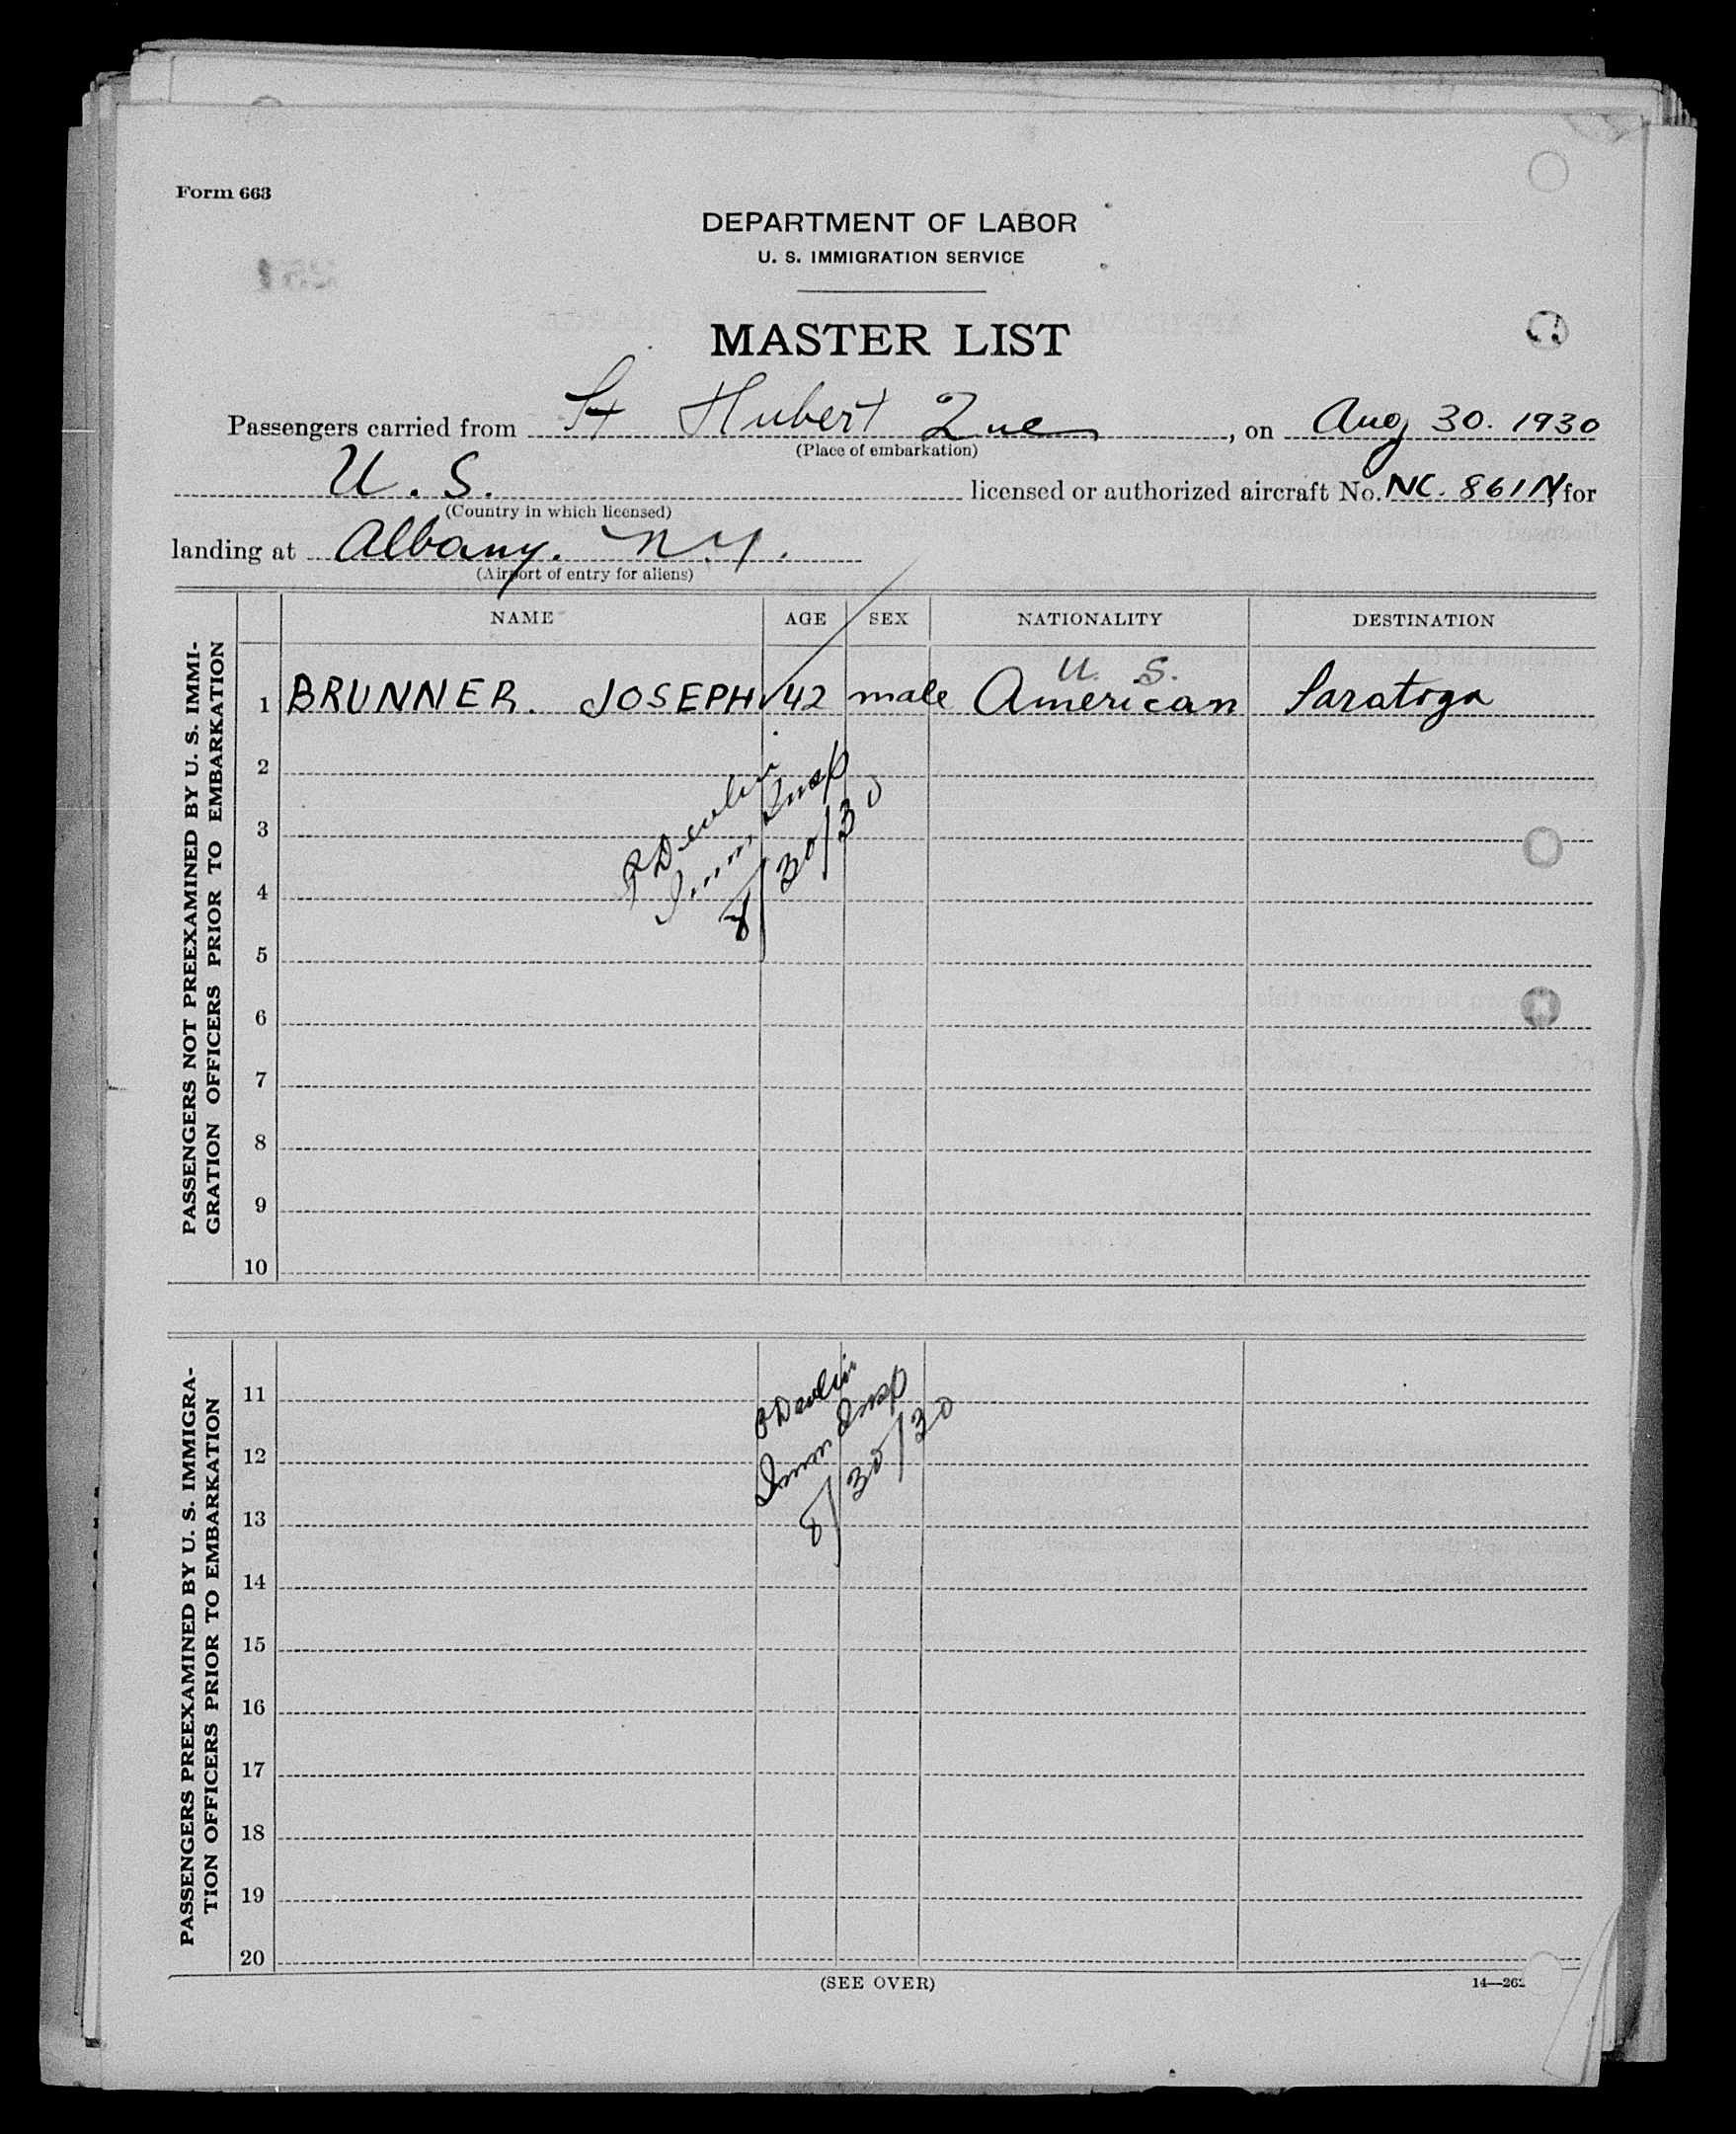 Form 663
DEPARTMENT OF LABOR
U. S. IMMIGRATION SERVICE
MASTER LIST
Passengers carried from St Hubert Que, on Aug 30. 1930
(Place of embarkation)
U. S. licensed or authorized aircraft No. NC. 861N, for
(Country in which licensed)
landing at Albany. N.Y.
(Airport of entry for aliens)
NAME AGE SEX NATIONALITY DESTINATION
PASSENGERS NOT PREEXAMINED BY U. S. IMMI-
GRATION OFFICERS PRIOR TO EMBARKATION
U. S.
1 BRUNNER. JOSEPH 42 male American Saratoga
2
3
4
5
6
7
8
9
10
Devlin
Imm Insp
8/30/30
PASSENGERS PREEXAMINED BY U. S. IMMIGRA-
TION OFFICERS PRIOR TO EMBARKATION
11
12
13
14
15
16
17
18
19
20
Devlin
Imm Insp
8/30/30
(SEE OVER)
14—262